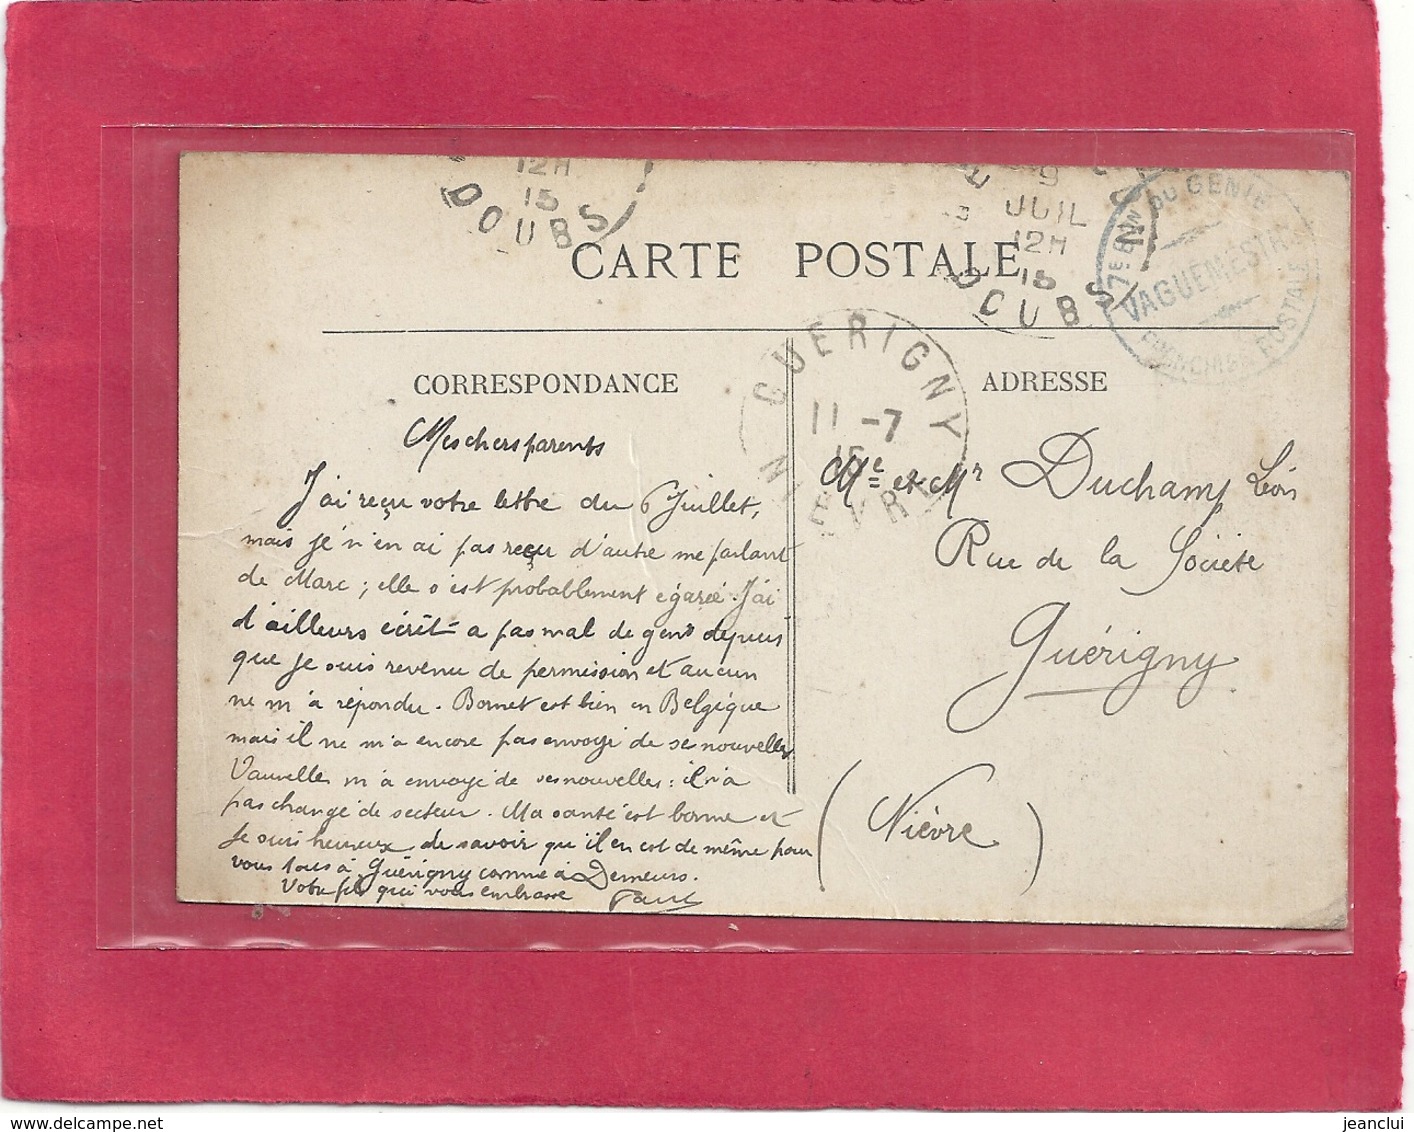 12H
15
DOUBS
9
JUIL
12H
15
DOUBS
7e BON DU GENIE
VAGUEMESTRE
FRANCHISE POSTALE
CARTE POSTALE
GUERIGNY
11 -7
15
NIEVRE
CORRESPONDANCE
Mes chers parents
J'ai reçu votre lettre du 6 Juillet,
mais je n'en ai pas reçu d'autre me parlant
de Marc ; elle s'est probablement égarée. J'ai
d'ailleurs écrit a pas mal de gens depuis
que je suis revenu de permission et aucun
ne m'a répondu. Bornet est bien en Belgique
mais il ne m'a encore pas envoyé de ses nouvelles
Vauvelle m'a envoyé de ses nouvelles : il n'a
pas changé de secteur. Ma santé est bonne et
je suis heureux de savoir qu'il en est de même pour
vous tous à Guérigny comme à Demeurs.
Votre fils qui vous embrasse Paul
ADRESSE
Me et Mr Duchamp Léon
Rue de la Société
Guérigny
(Nièvre)
jeanclui